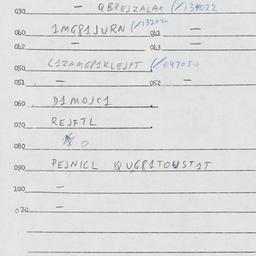 030 — QBREJZALAX (/134022
040 1MG81JURN (/132020 041 —
042 — 043 —
050 C1ZAMGP1KLEJPT (/047050
051 — 052 —
060 D1MOJC1
070 REJFTL
080 0
090 PEJNICL QUG81TOWST1T
100 —
070 —